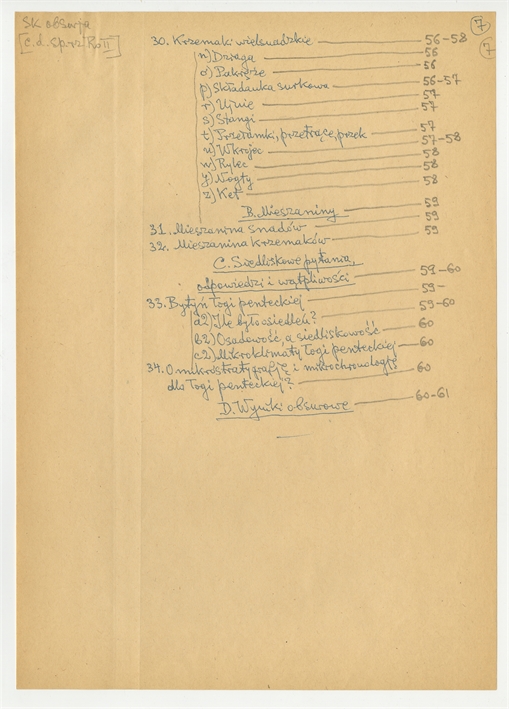 SK obserja
[c.d. sprz RoII]
7
7
30. Krzemaki wielsnadzkie 56-58
n) Dzraga 56
o) Pakręże 56
p) Składanka surkowa 56-57
r) Ujnie 57
s) Stangi 57
t) Przeramki, przetrące, przek 57
u) Wkrojec 57-58
w) Rylec 58
y) Nogty 58
z) Ket 58
B. Mieszaniny 59
31. Mieszanina snadów 59
32. Mieszanina krzemaków 59
C. Siedliskowe pytania,
odpowiedzi i wątpliwości 59-60
33. Bytyń Łogi penteckiej 59-
a2) Ile było osiedleń? 59-60
b2) Osadowość, a siedliskowość 60
c2) Mikroklimaty Łogi penteckiej 60
34. O mikrostratygrafję i mikrochronologję
dla Łogi penteckiej? 60
D. Wyniki obsurowe 60-61